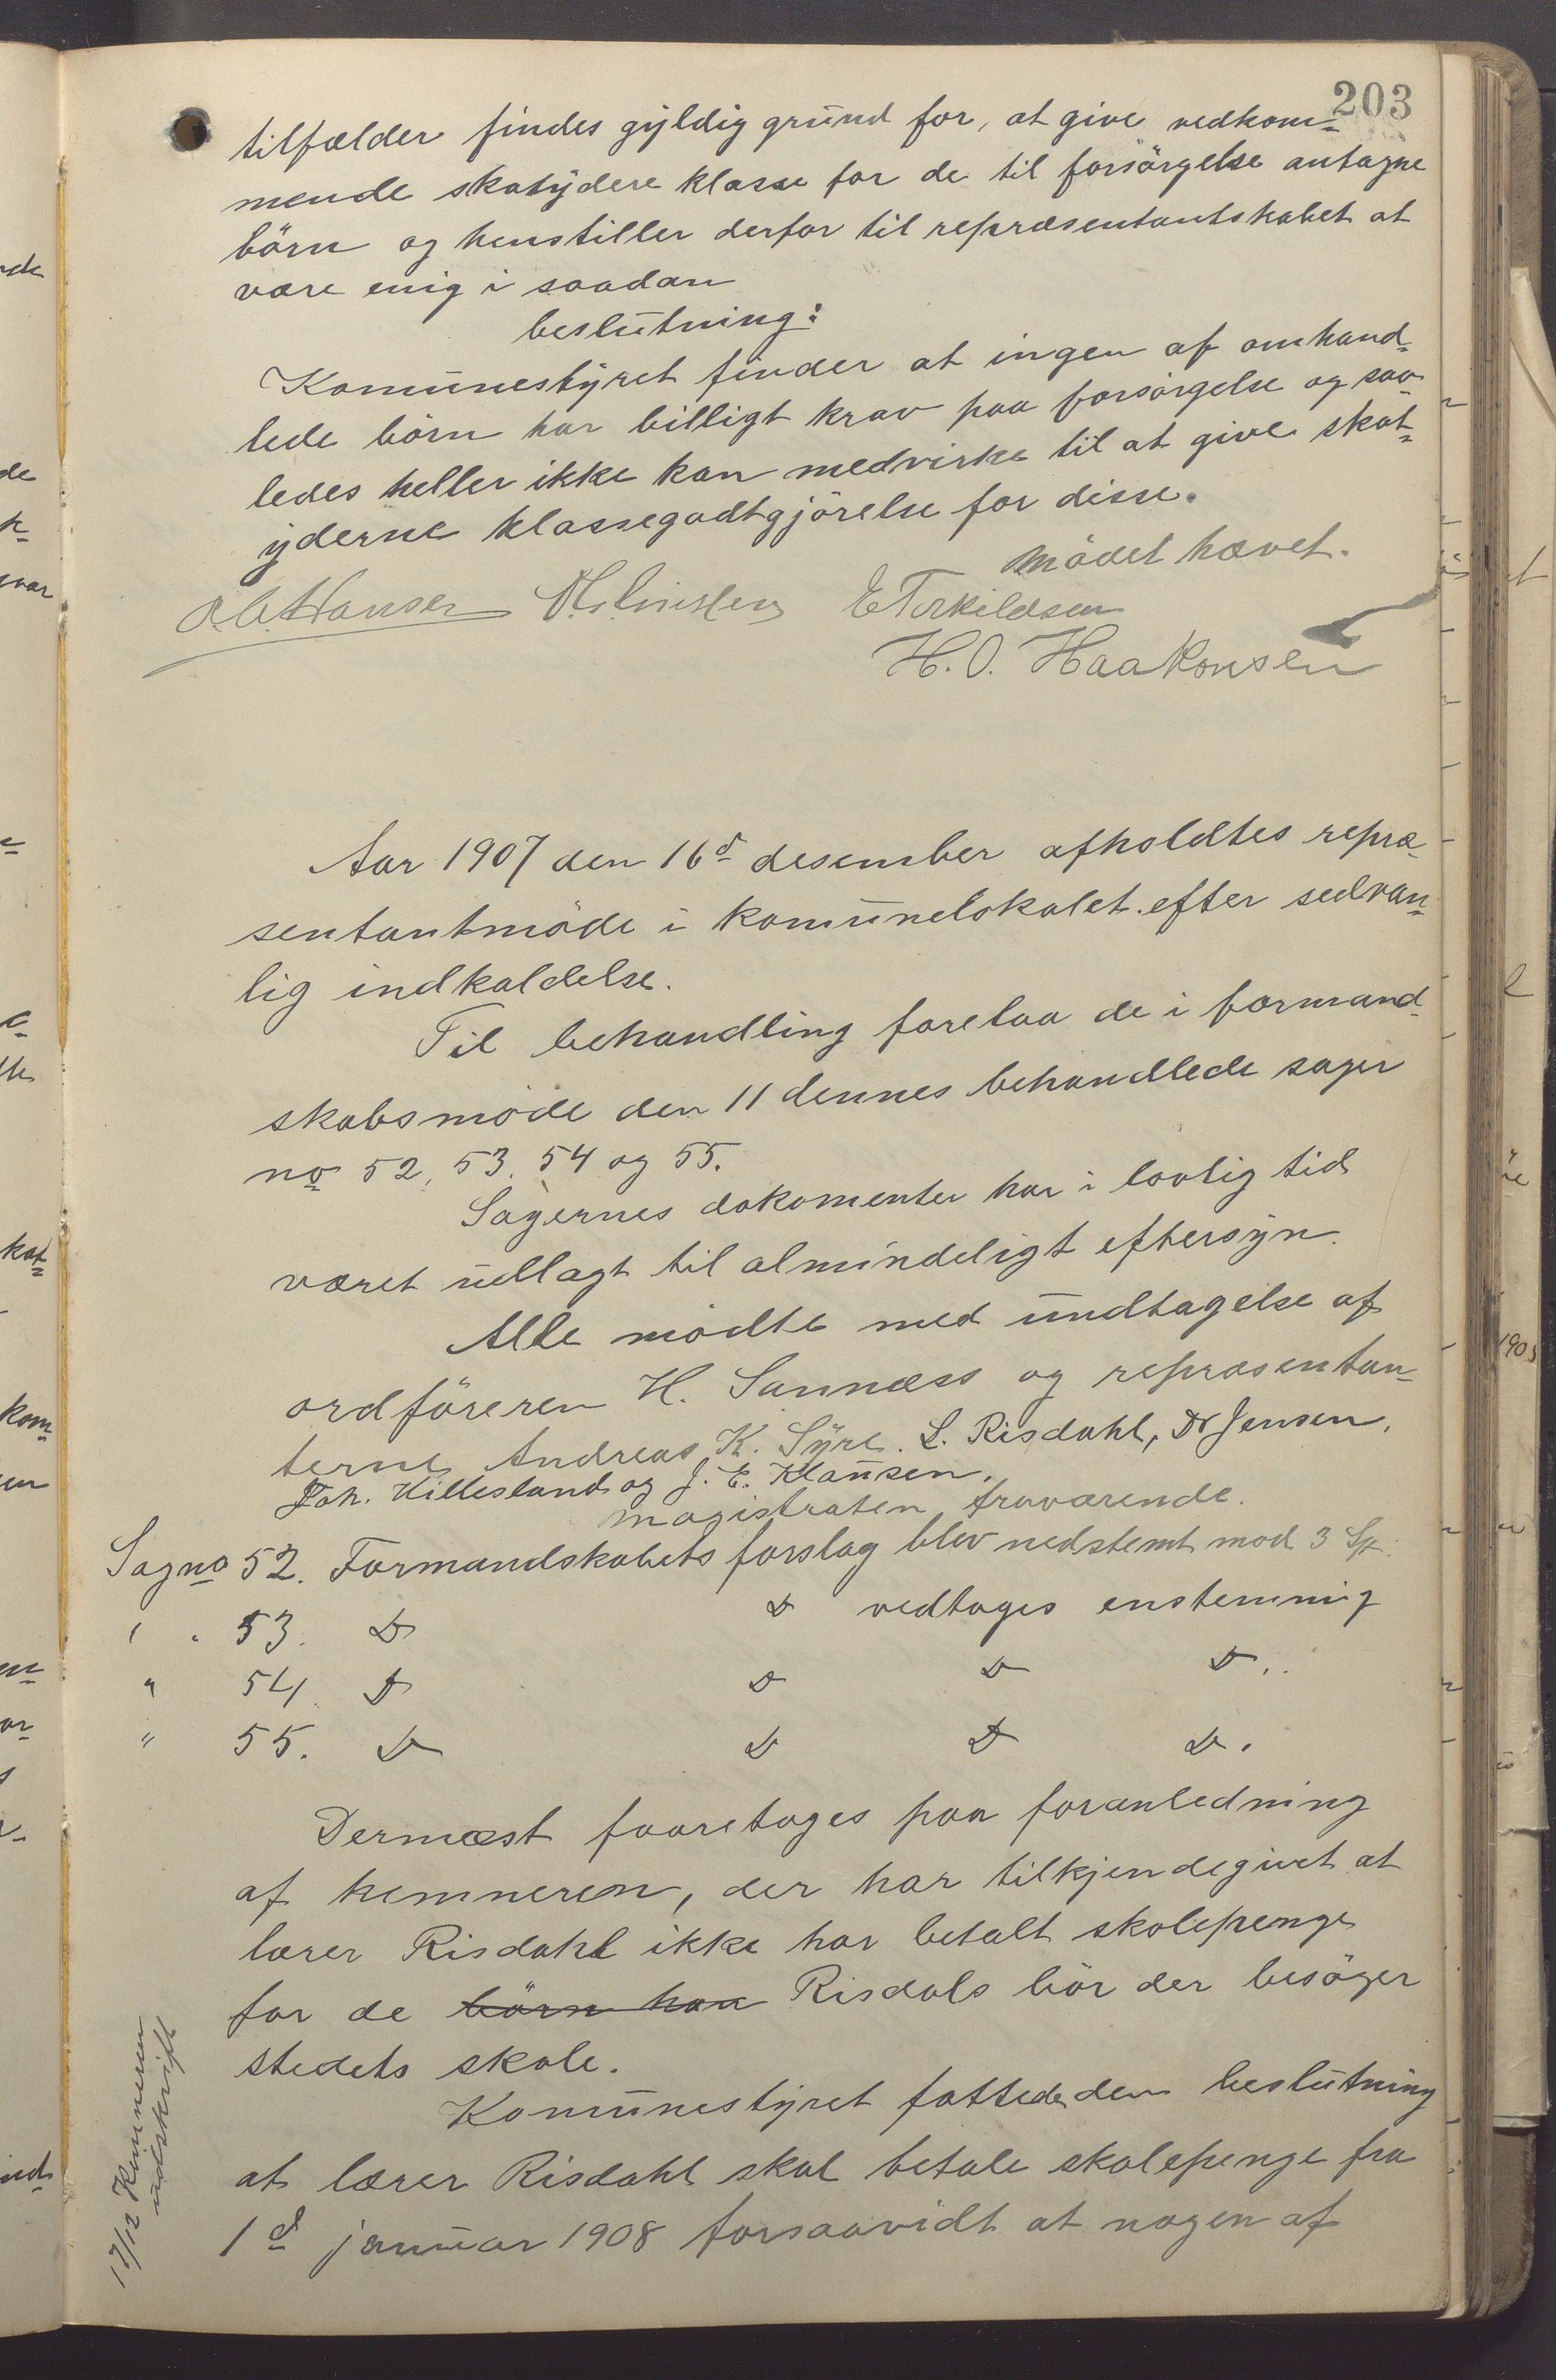 203
tilfælder findes gyldig grund for, at give vedkom=
mende skatydere klasse for de til forsörgelse antagne
börn og henstiller derfor til repræsentantskabet at
være enig i saadan
beslutning:
Komunestyret finder at ingen af omhand=
lede börn har billigt krav paa forsörgelse og saa
ledes heller ikke kan medvirke til at give skat=
yderne klassegodtgjörelse for disse.
Mödet hævet.
O. A. Hansen E Terkildsen
H. O. Haakonsen
Aar 1907 den 16d desember afholdtes repræ=
sentantmöde i komunelokalet efter sedvan=
lig indkaldelse.
Til behandling forelaa de i formand=
skabsmöde den 11 dennes behandlede sager
no 52, 53, 54 og 55.
Sagernes dokomenter har i lovlig tid
været udlagt til almindeligt eftersyn.
Alle mödte med undtagelse af
ordföreren H. Sannæss og repræsentan=
terne Andreas K. Syre. L. Risdahl, Dr Jensen,
Joh. Hillesland og J. E. Klausen.
Magistraten fraværende.
Sag no 52. Formandskabets forslag blev nedstemt mod 3 St.
" " 53. D D vedtages enstemmig
" 54. D D D D.
" 55. D D D D.
Dernæst fooretages paa foranledning
af kemneren, der har tilkjendegivet at
lærer Risdahl ikke har betalt skolepenge
for de börn han Risdals bör der besöger
stedets skole.
Komunestyret fattede den beslutning
at lærer Risdahl skal betale skolepenge fra
1d januar 1908 forsaavidt at nogen af
17/12 Kemneren
udskrift